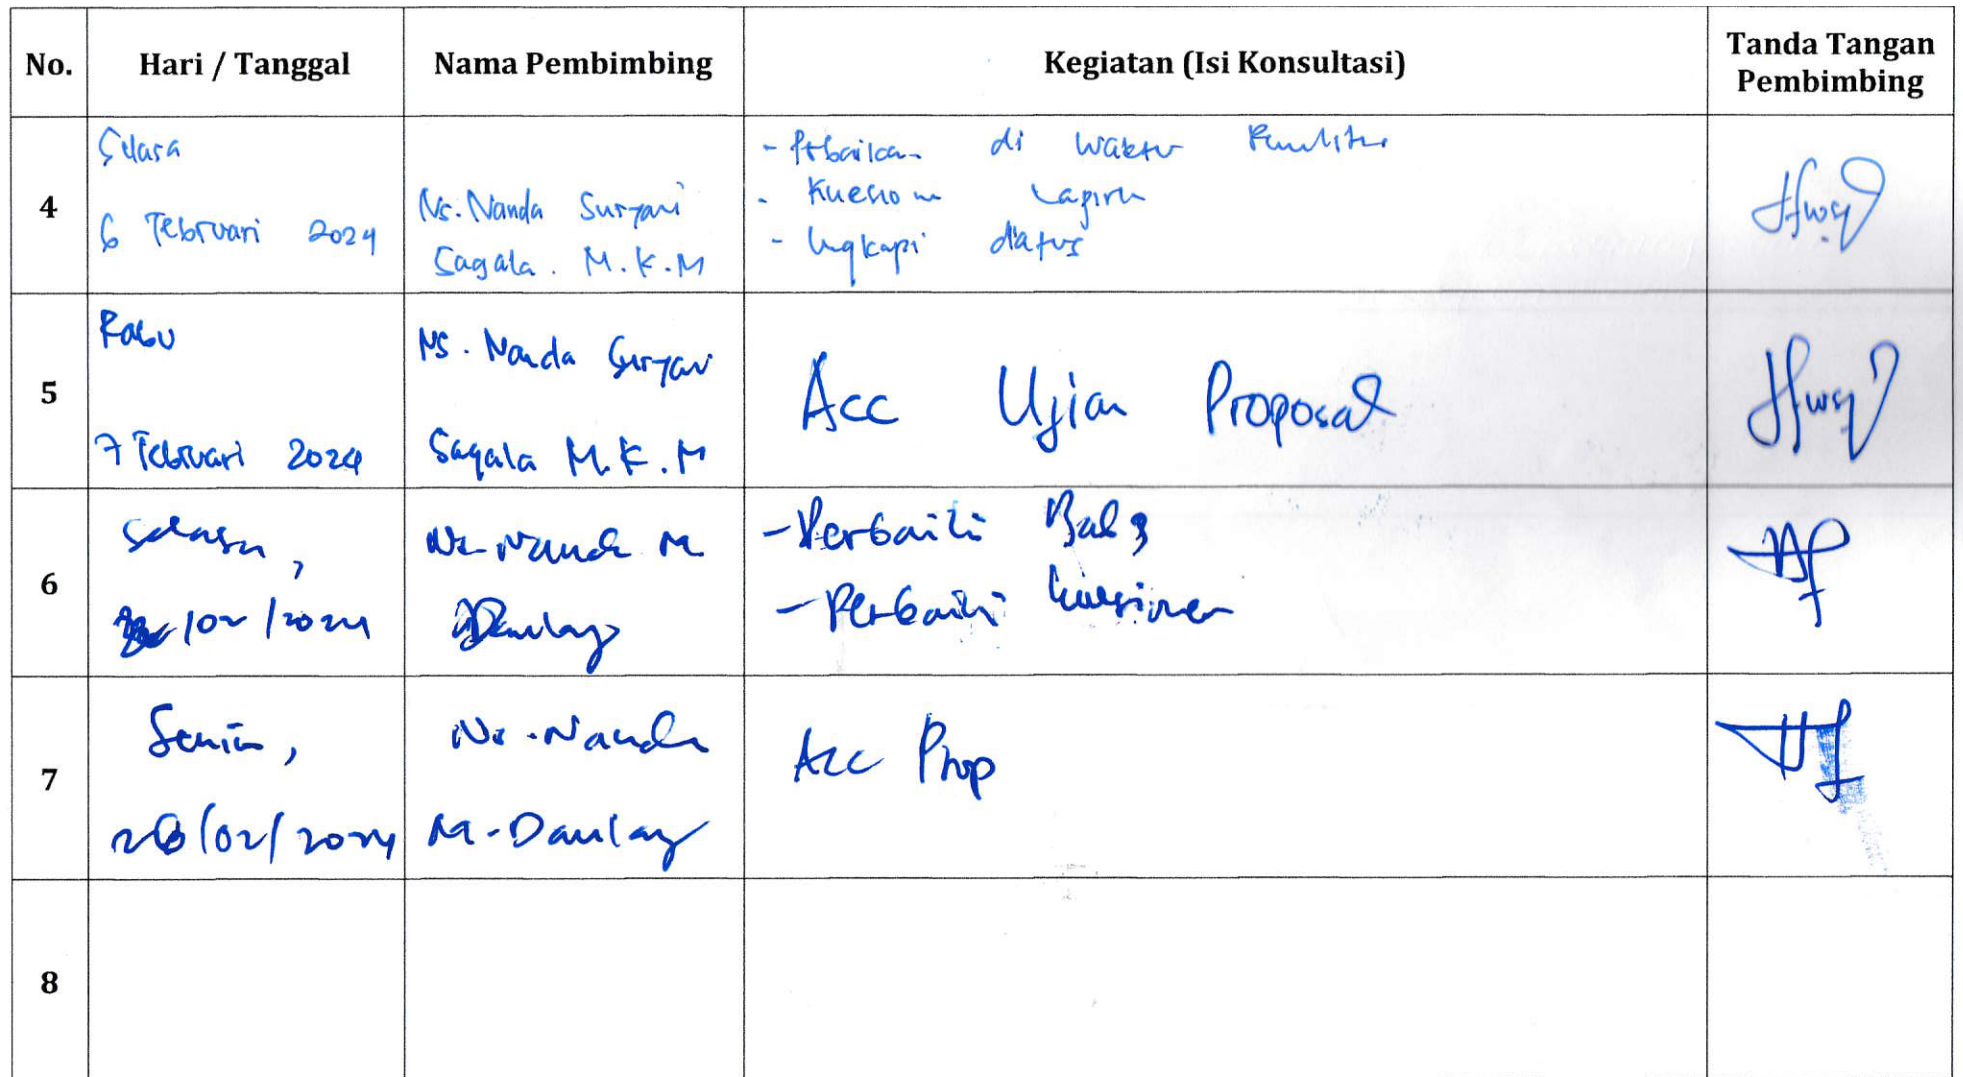 No. Hari / Tanggal Nama Pembimbing Kegiatan (Isi Konsultasi) Tanda Tangan
Pembimbing
4
Selasa
6 Februari 2024
Ns. Nanda Suryani
Sagala. M.K.M
- Perbaikan di waktu Penelitian
- Kuesioner Lapiran
- Lengkapi dafus
5
Rabu
7 Februari 2024
Ns. Nanda Suryani
Sagala M.K.M
Acc Ujian Proposal
6
Selasa,
/02/2024
Ns. Nanda M
Daulay
- Perbaiki Bab 3
- Perbaiki kuesioner
7
Senin,
26/02/2024
Ns. Nanda
M. Daulay
Acc Prop
8